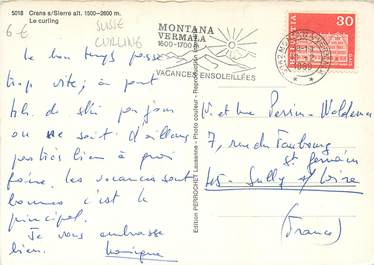 5018 Crans s/Sierre alt. 1500-2600 m.
Le curling
6 €
SUISSE
CURLING
MONTANA
VERMALA
1600-1700 m
VACANCES ENSOLEILLÉES
HELVETIA
30
Le bon temps passe
trop vite, à part
de ski par jour
on ne sait d'ailleurs
pas très bien à quoi
faire. les vacances sont
bonnes c'est le
principal.
Je vous embrasse
bien. Monique
Edition PERROCHET Lausanne - Photo couleur - Reproduction
M. et Mme Perrin-Waldemar
7, rue du Faubourg
St. Germain
45 - Sully s/Loire
(France)